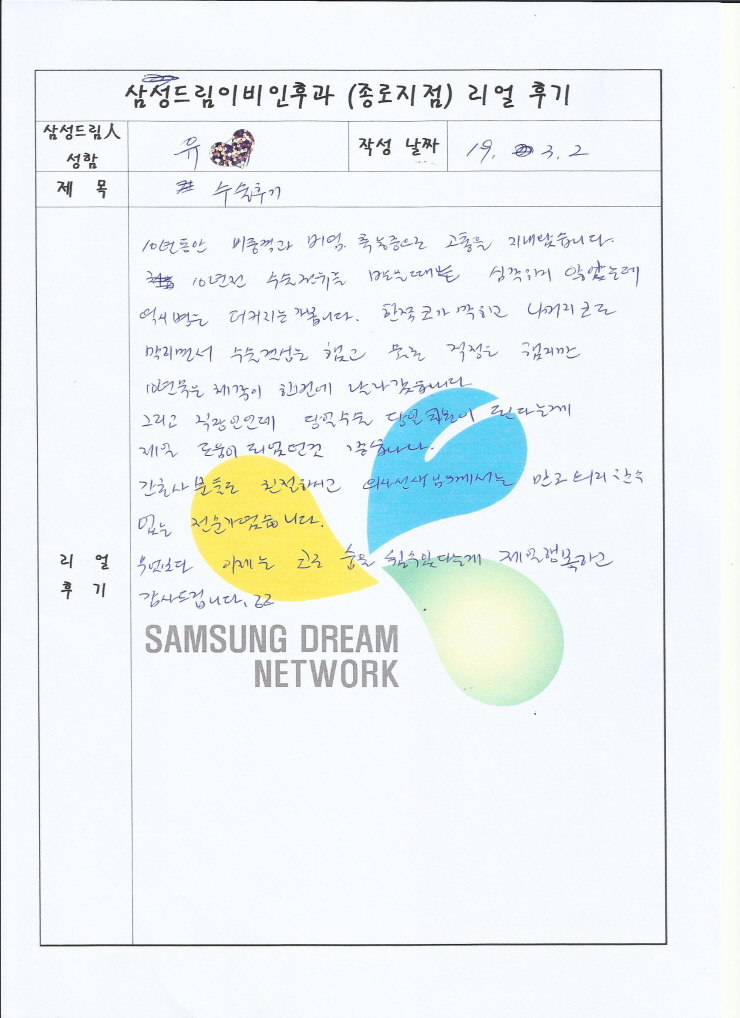 삼성드림이비인후과 (종로지점) 리얼 후기
삼성드림人
성함
유
작성 날짜
19. 3. 2
제 목
수술후기
10년동안 비중격과 비염, 축농증으로 고통을 지내왔습니다.
10년전 수술권유를 받을때는 심각하지 않았는데
역시 병은 더커지는가봅니다. 한쪽코가 막히고 나머지 코도
막히면서 수술결심을 했고 물론 걱정은 했지만
10년묵은 체기이 한번에 날라갔습니다
그리고 직장인인데 당일수술 당일 퇴원이 된다는게
제일 도움이 되었던것 같습니다.
간호사분들도 친절하시고 의사선생님께서는 말로 되리 할수
없는 전문가였습니다.
무엇보다 이제는 코로 숨을 쉴수있다는게 제일행복하고
감사드립니다.
리 얼
후 기
SAMSUNG DREAM
NETWORK